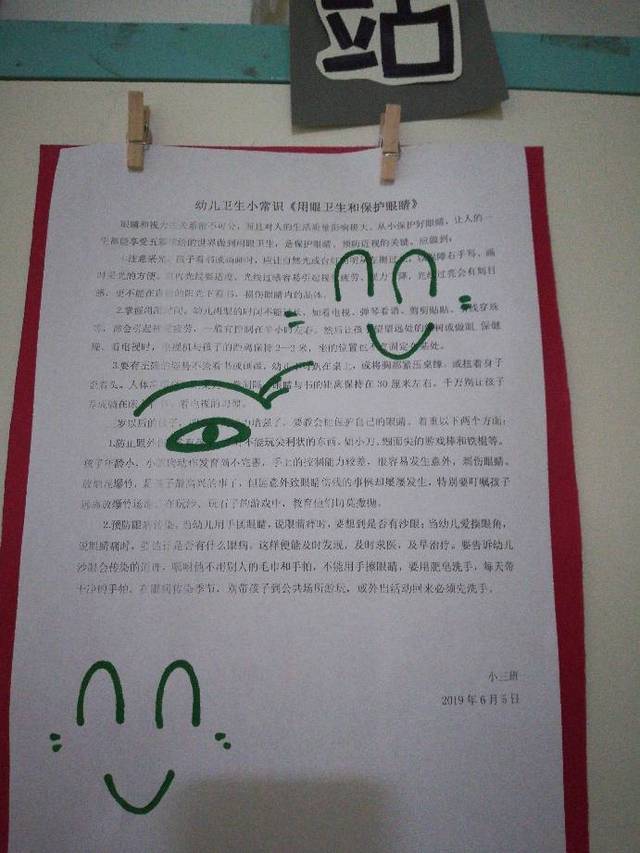 站
幼儿卫生小常识《用眼卫生和保护眼睛》
眼睛和视力 不可分，而且对人的生活质量影响极大。从小保护好眼睛，让人的一
的世界做到用眼卫生，是保护眼睛、预防近视的关键，应做到：
孩子看书或画画时，应让自然光或台灯
时采光的方便。室内光线要适度，光线过暗容易引起视 疲劳、 光线过亮会有刺目
感，更不能在 阳光下看书，损伤眼睛内的晶体。
2.掌握 时间。幼儿用眼的时间不能 如看电视、弹琴看谱、剪剪贴贴、 线穿珠
等，都会引起 疲劳，一般宜控制在半小时左右。然后让孩 望望远处的 树或做眼 保健
看电视时，电视机与孩子的距离保持2—2米，坐的位置
3.要有正确的姿势不论看书或画画，幼 趴在桌上，或将胸部紧压桌缘，或扭着身子
眼睛与书的距离保持在30厘米左右。千万别让孩子
养成躺在 看电视的习惯。
岁以后的孩子， 增强了，要教会他保护自己的眼睛。着重以下两个方面：
1.防止眼外伤 不能玩尖利状的东西，如小刀、细而尖的游戏棒和铁棍等。
孩子年龄小， 动作发育尚不完善，手上的控制能力较差，很容易发生意外，刺伤眼睛。
放烟花爆竹，是孩子最高兴的事了，但因意外致眼睛伤残的事例却屡屡发生，特别要叮嘱孩子
远离放爆竹 在玩沙、玩石子的游戏中，教育他们切莫撒抛。
2.预防眼病传染。当幼儿用手揉眼睛，说眼睛痒时，要想到是否有沙眼；当幼儿爱揉眼角，
说眼睛痛时，要估计是否有什么眼病。这样便能及时发现，及时求医，及早治疗。要告诉幼儿
沙眼会传染的道理，聪明的不用别人的毛巾和手帕，不能用手擦眼睛，要用肥皂洗手，每天带
干净的手帕。在眼病传染季节，别带孩子到公共场所游玩，或外出活动回来必须先洗手。
小三班
2019年6月5日